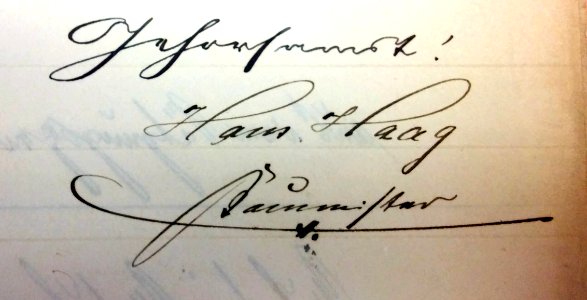 Gehorsamst!
Hans Haag
Baumeister